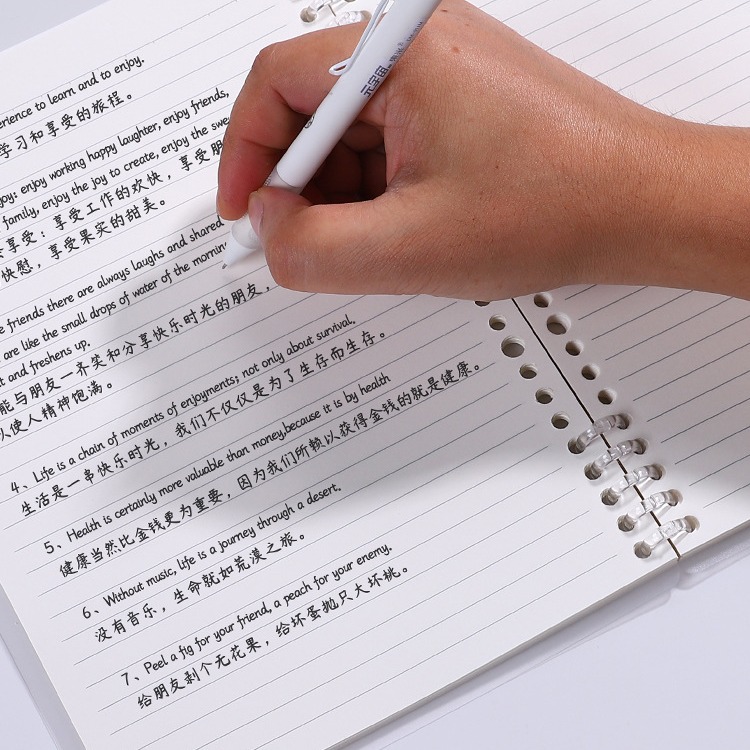 erience to learn and to enjoy.
学习和享受的旅程。
joy: enjoy working happy laughter, enjoy friends,
family, enjoy the joy to create, enjoy the swe
享受：享受工作的欢快，享受朋
快慰，享受果实的甜美。
e friends there are always laughs and shared
are like the small drops of water of the mornin
t and freshens up.
能与朋友一齐笑和分享快乐时光的朋友，
以使人精神饱满。
4、Life is a chain of moments of enjoyments; not only about survival.
生活是一串快乐时光，我们不仅仅是为了生存而生存。
5、Health is certainly more valuable than money,because it is by health
健康当然比金钱更为重要，因为我们所赖以获得金钱的就是健康。
6、Without music, life is a journey through a desert.
没有音乐，生命就如荒漠之旅。
7、Peel a fig for your friend, a peach for your enemy.
给朋友剥个无花果，给坏蛋抛只大坏桃。